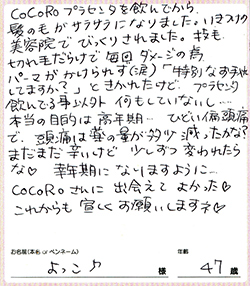 CoCoRoプラセンタを飲んでから、
髪の毛がサラサラになりました。いきつけの
美容院でびっくりされました。枝毛
切れ毛だらけで毎回ダメージの為
パーマがかけられず(涙)「特別なお手入れ
してますか?」ときかれたけど、プラセンタ
飲んでる事以外何もしていないし……
本当の目的は高年期…ひどい偏頭痛
で、頭痛は薬の量が多少減ったかな?
まだまだ辛いけど少しずつ変われたら
な♡ 幸年期になりますように…
CoCoRoさんに出会えてよかった♡
これからも宜しくお願いしますネ♡
お名前(本名 or ペンネーム)
年齢
よっこ♪ 様 47歳